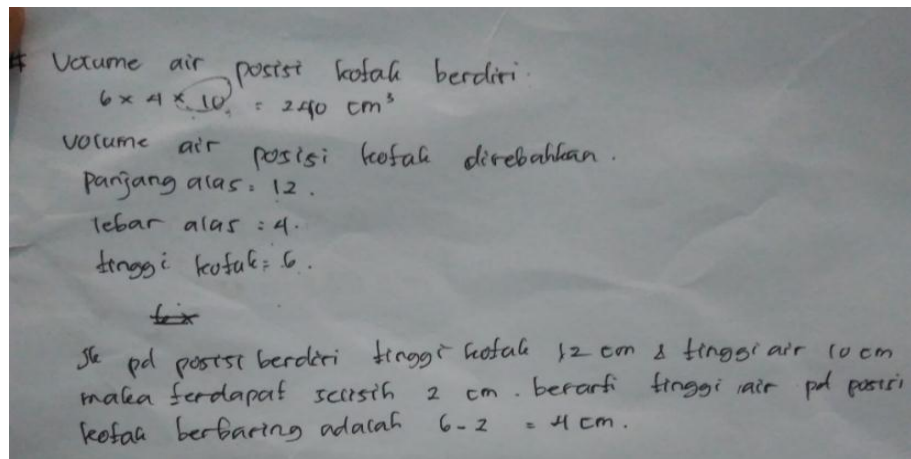 # Volume air posisi kotak berdiri.
6 x 4 x 10 = 240 cm³
Volume air posisi kotak direbahkan.
Panjang alas = 12.
lebar alas = 4.
tinggi kotak = 6.
Jk pd posisi berdiri tinggi kotak 12 cm & tinggi air 10 cm
maka terdapat selisih 2 cm. berarti tinggi air pd posisi
kotak berbaring adalah 6-2 = 4 cm.